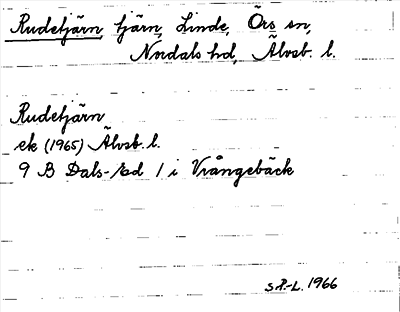 Rudetjärn, tjärn, Linde, Örs sn,
Nordals hd, Älvsb. l.
Rudetjärn
ek (1965) Älvsb. l.
9 B Dals-Ed 1 i Vrångebäck
S.P-L. 1966